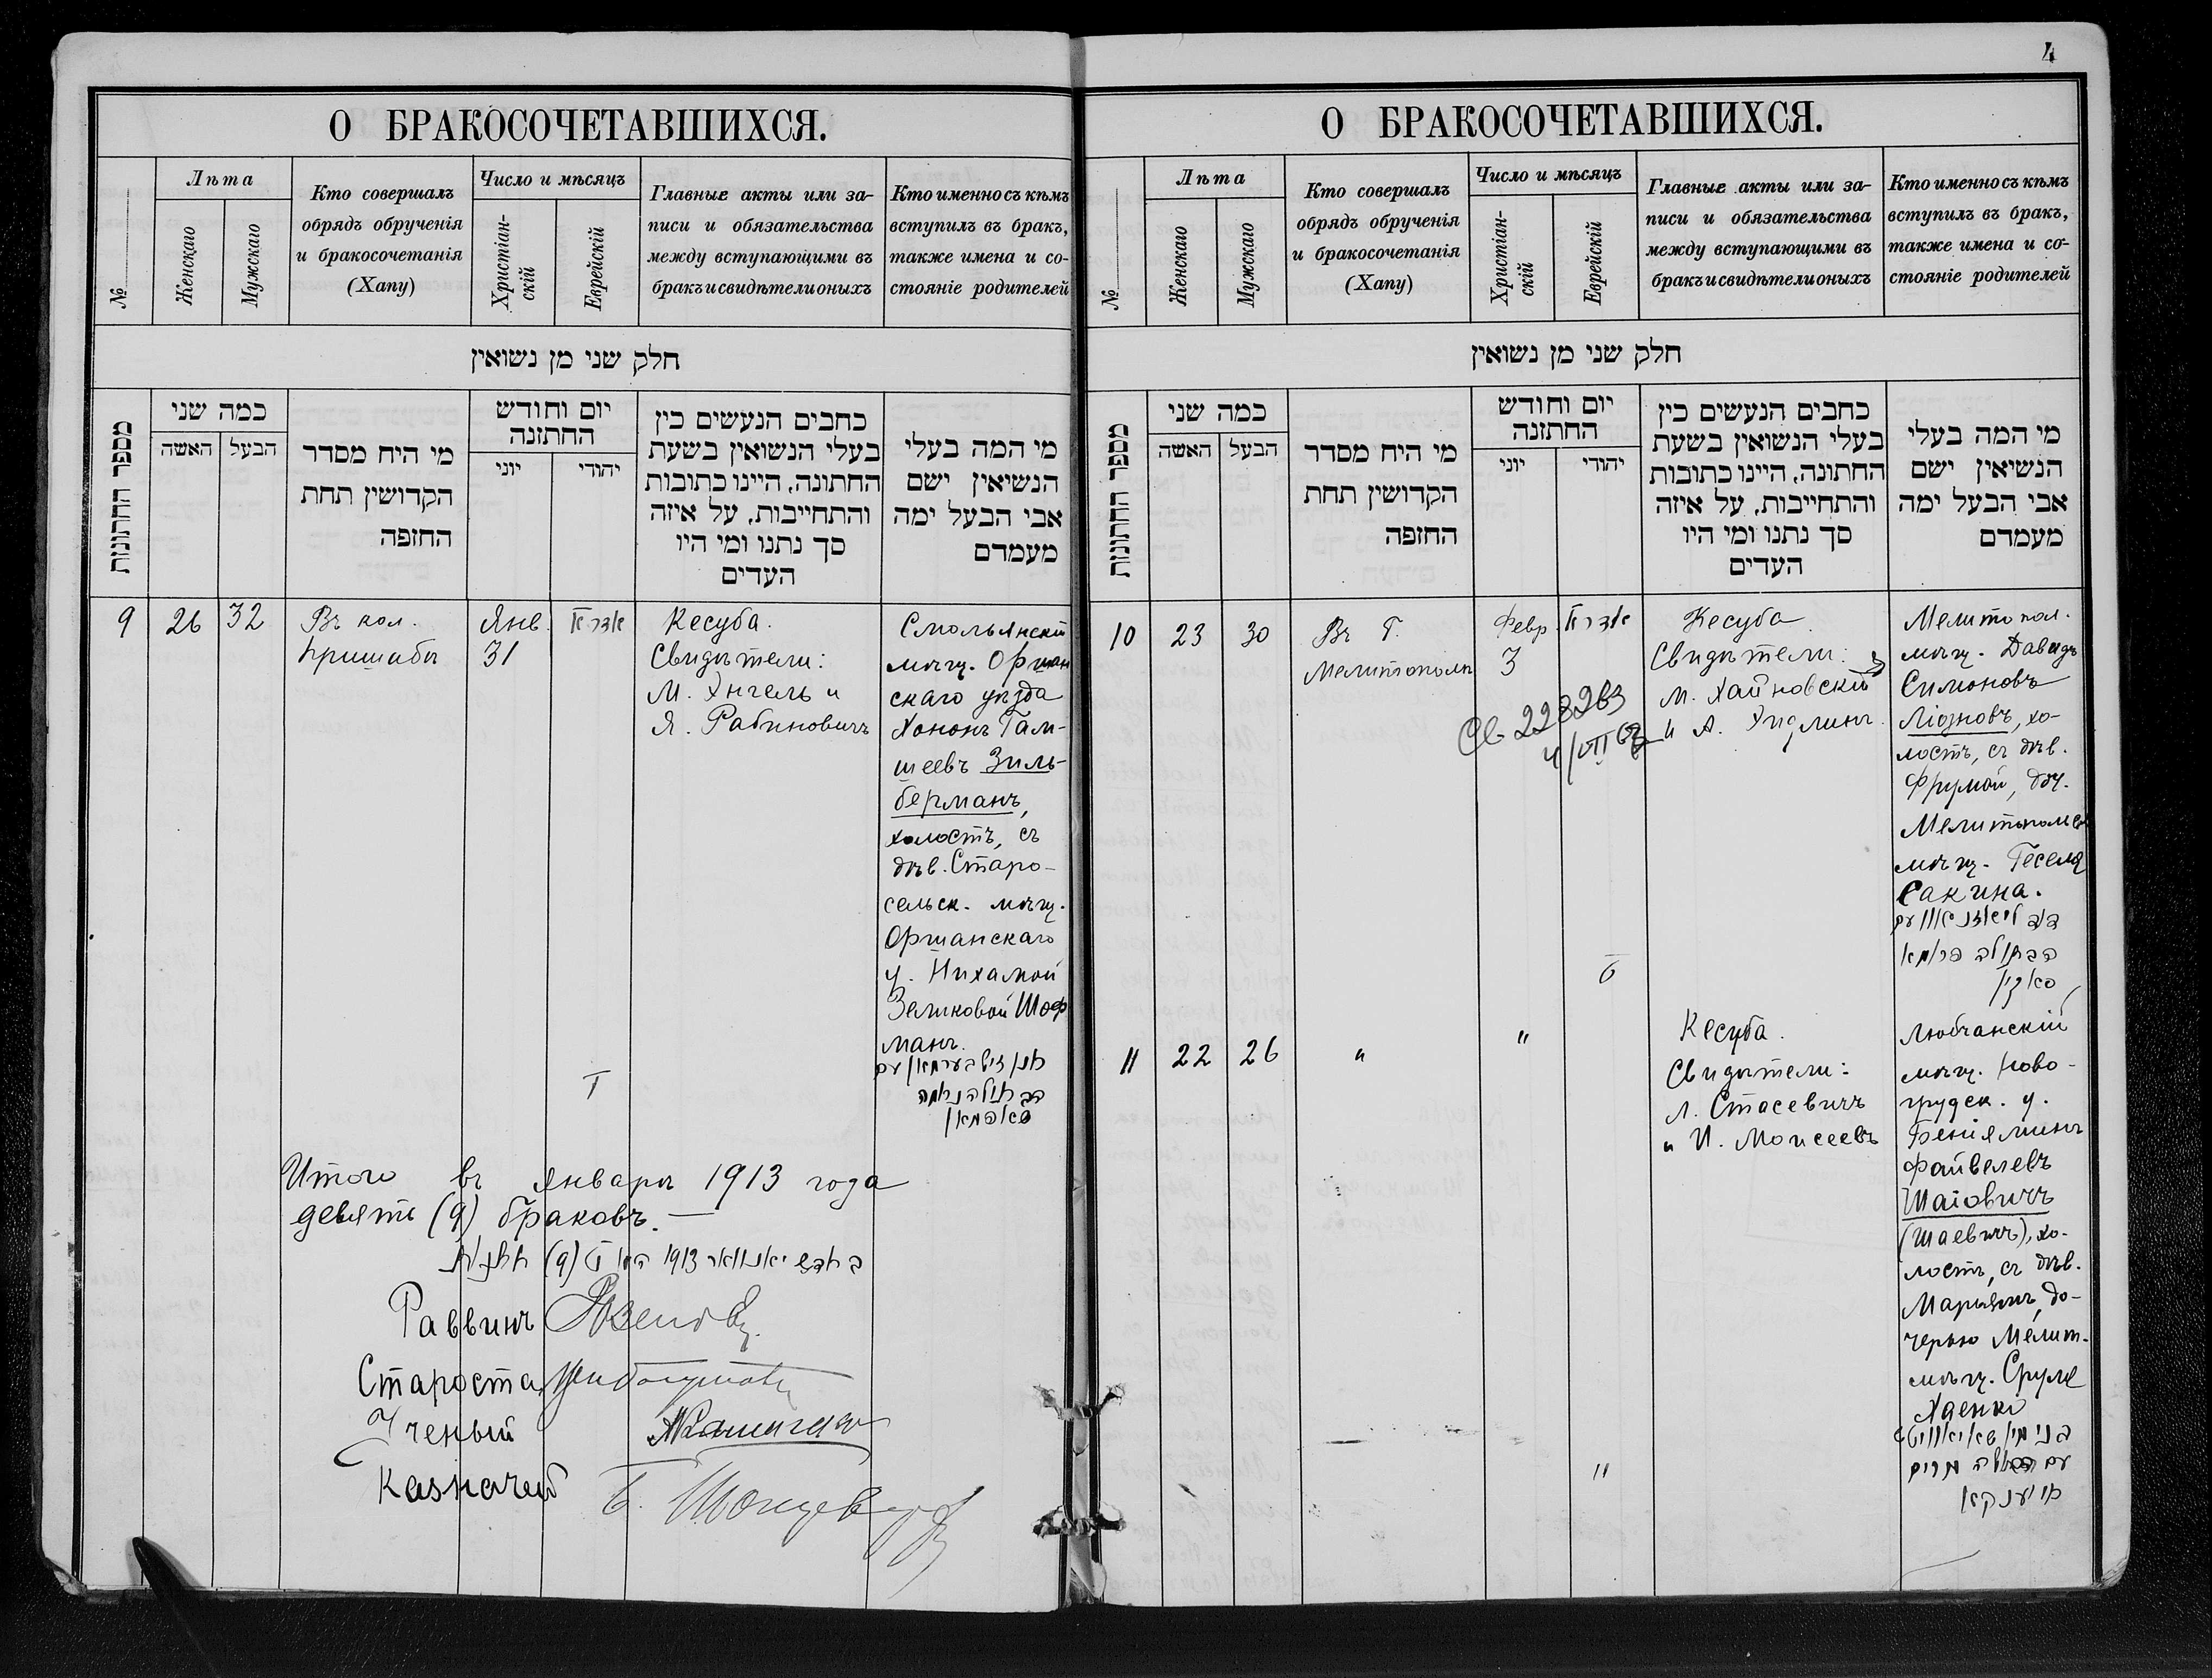 4
О БРАКОСОЧЕТАВШИХСЯ.
№
Лѣта
Женскаго
Мужскаго
Кто совершалъ
обрядъ обрученія
и бракосочетанія
(Хапу)
Число и мѣсяцъ
Христіан-
скій
Еврейскій
Главные акты или за-
писи и обязательства
между вступающими въ
бракъ и свидѣтели оныхъ
Кто именно съ кѣмъ
вступилъ въ бракъ,
также имена и со-
стояніе родителей
חלק שני מן נשואין
מספר החתונות
כמה שני
האשה
הבעל
מי היח מסדר
הקדושין תחת
החזפה
יום וחודש
החתזנה
יוני
יהודי
כחבים הנעשים כין
בעלי הנשואין בשעת
החתונה, היינו כתובות
והתחייבות, על איזה
סך נתנו ומי היו
העדים
מי המה בעלי
הנשיאין ישם
אבי הבעל ימה
מעמדם
9
26
32
Въ кол.
Пришибъ
Янв.
31
אדר א
Кесуба.
Свидѣтели:
М. Энгель и
Я. Рабиновичъ
Смольянскій
мѣщ. Оршан
скаго уѣзда
Хононъ Гам-
шеевъ Зиль-
берманъ,
холостъ, съ
дѣв. Старо-
сельск. мѣщ.
Оршанскаго
у. Нихамой
Зеликовой Шоф
манъ.
חנן זילבערמאן עם
הבתולה נחמה
שאפמאן
Итого въ январѣ 1913 года
девять (9) браковъ. —
בחדש יאנואר 1913 (9)
Раввинъ
Староста
Ученый
Казначей
Б.
О БРАКОСОЧЕТАВШИХСЯ.
№
Лѣта
Женскаго
Мужскаго
Кто совершалъ
обрядъ обрученія
и бракосочетанія
(Хапу)
Число и мѣсяцъ
Христіан-
скій
Еврейскій
Главные акты или за-
писи и обязательства
между вступающими въ
бракъ и свидѣтели оныхъ
Кто именно съ кѣмъ
вступилъ въ бракъ,
также имена и со-
стояніе родителей
חלק שני מן נשואין
מספר החתונות
כמה שני
האשה
הבעל
מי היח מסדר
הקדושין תחת
החזפה
יום וחודש
החתזנה
יוני
יהודי
כחבים הנעשים כין
בעלי הנשואין בשעת
החתונה, היינו כתובות
והתחייבות, על איזה
סך נתנו ומי היו
העדים
מי המה בעלי
הנשיאין ישם
אבי הבעל ימה
מעמדם
10
23
30
Въ Г.
Мелитополѣ
Февр.
3
אדר א
Св 228283
4/VII
Кесуба.
Свидѣтели:
М. Хайновскій
и А. Эйдлинъ.
Мелитопол.
мѣщ. Давидъ
Симоновъ
Ліозновъ, хо-
лостъ, съ дѣв.
Фрумой, доч.
Мелитопольс
мѣщ. Геселя
Сакина.
הבתולה פרומא
סאקין
11
22
26
"
"
"
Кесуба.
Свидѣтели:
Л. Стасевичъ
и И. Моисеевъ
Любчанскій
мѣщ. Ново-
грудск. у.
Беніяминъ
Файвелевъ
Шаіовичъ
(Шаевичъ), хо-
лостъ, съ дѣв.
Марьямъ, до-
черью Мелит.
мѣщ. Сруля
Хаенко
בנימין שאיאוויטש
עם הבתולה מרים
חיענקא